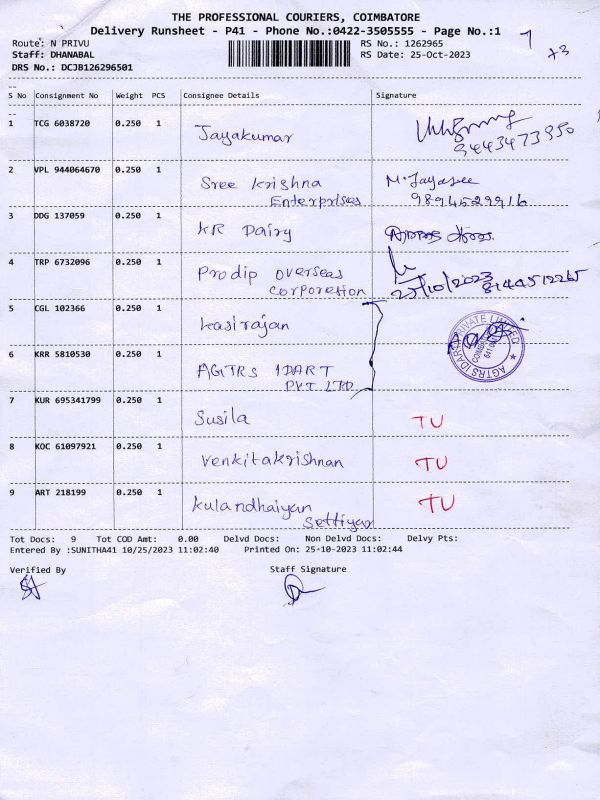 THE PROFESSIONAL COURIERS, COIMBATORE
Delivery Runsheet - P41 - Phone No.:0422-3505555 - Page No.:1
Route: N PRIVU RS No.: 1262965
Staff: DHANABAL RS Date: 25-Oct-2023
DRS No.: DCJB126296501
+3
S No Consignment No Weight PCS Consignee Details Signature
1 TCG 6038720 0.250 1 Jayakumar
9443473950
2 VPL 944064670 0.250 1 Sree Krishna M. Jayasree
Enterprises 9894529916
3 DDG 137059 0.250 1 KR Dairy
4 TRP 6732096 0.250 1 Prodip overseas
corporetion 25/10/2023 8144512265
5 CGL 102366 0.250 1 Kasirajan
6 KRR 5810530 0.250 1 AGTRS IDART
PVT LTD
AGTRS IDART PRIVATE LIMITED
7 KUR 695341799 0.250 1 Susila TU
8 KOC 61097921 0.250 1 Venkitakrishnan TU
9 ART 218199 0.250 1 Kulandhaiyan TU
Settiyar
Tot Docs: 9 Tot COD Amt: 0.00 Delvd Docs: Non Delvd Docs: Delvy Pts:
Entered By :SUNITHA41 10/25/2023 11:02:40 Printed On: 25-10-2023 11:02:44
Verified By Staff Signature